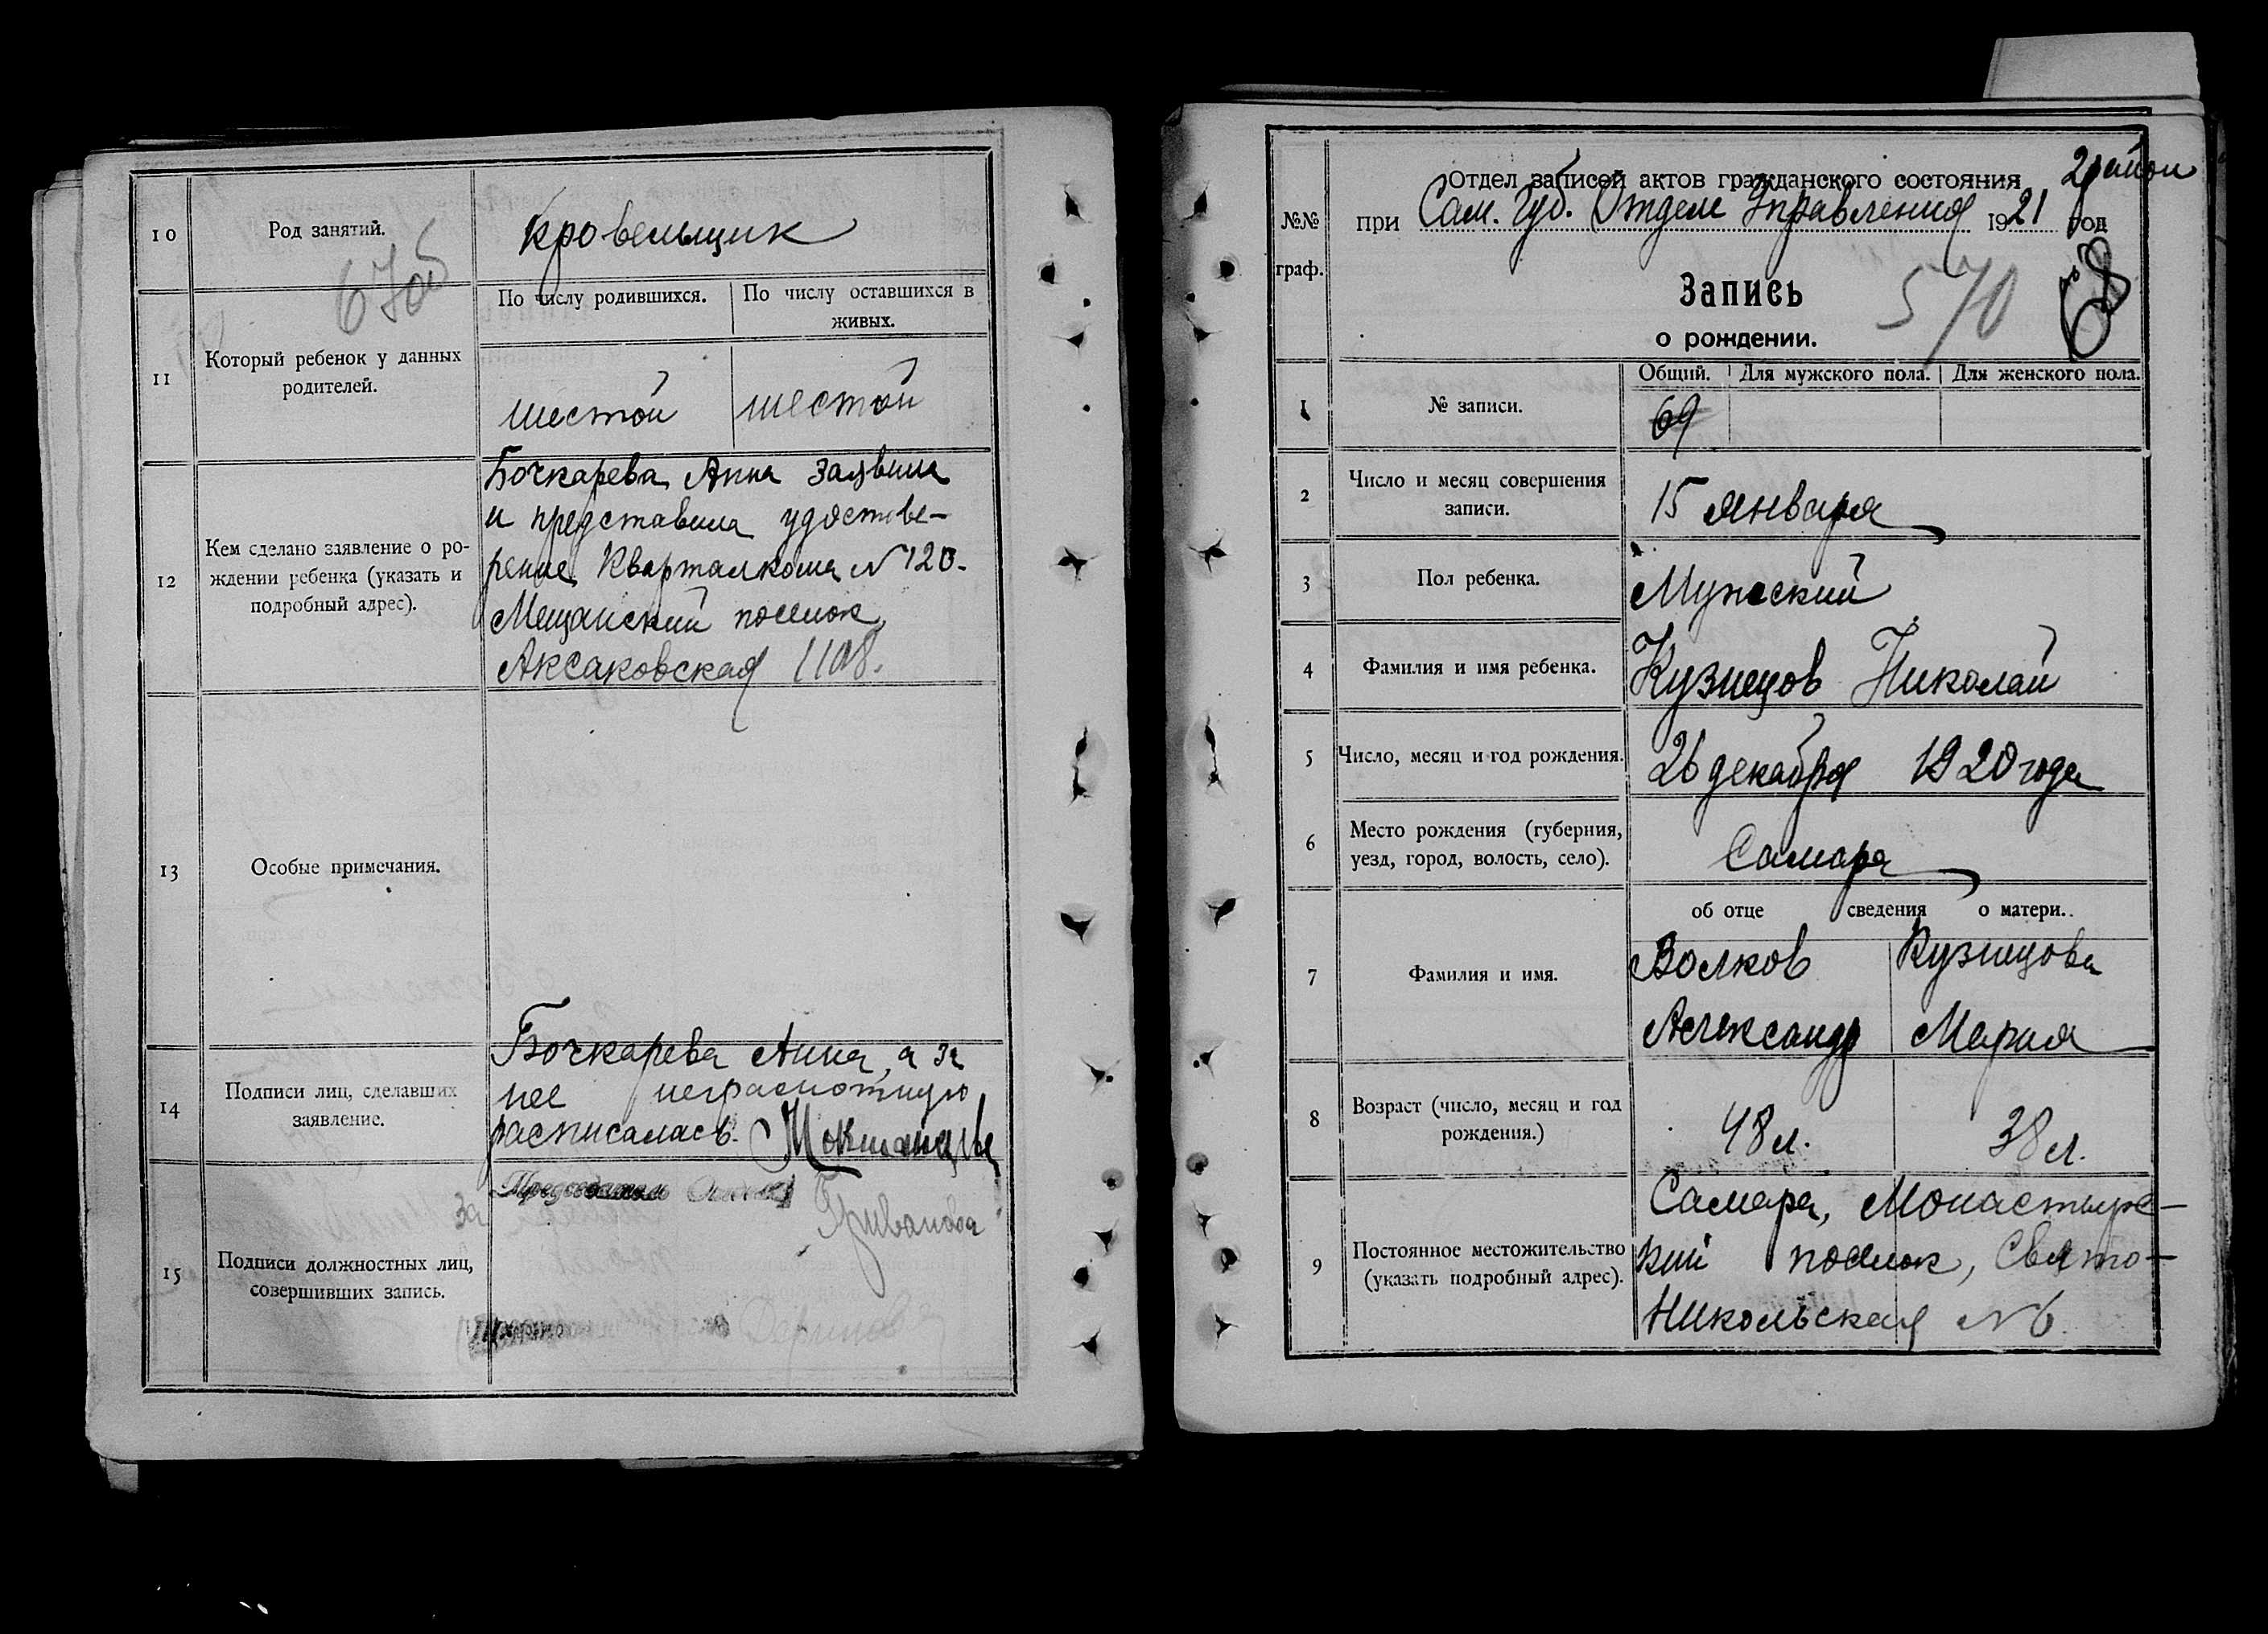 10
Род занятий.
Кровельщик
67об
11
Который ребенок у данных
родителей.
По числу родившихся.
По числу оставшихся в
живых.
шестой
шестой
12
Кем сделано заявление о ро-
ждении ребенка (указать и
подробный адрес).
Бочкарева Анна заявила
и представила удостове-
рение Кварталкома N 120.
Мещанский поселок
Аксаковская 1108.
13
Особые примечания.
14
Подписи лиц, сделавших
заявление.
Бочкарева Анна, а за
нее неграмотную
расписалась.
15
Подписи должностных лиц,
совершивших запись.
за
№№
граф.
Отдел записей актов гражданского состояния
2 район
при Сам. Губ. Отделе Управления 1921 год
Запись
о рождении.
570
68
1
№ записи.
Общий.
Для мужского пола.
Для женского пола.
69
2
Число и месяц совершения
записи.
15 января
3
Пол ребенка.
Мужский
4
Фамилия и имя ребенка.
Кузнецов Николай
5
Число, месяц и год рождения.
26 декабря 1920 года
6
Место рождения (губерния,
уезд, город, волость, село).
Самара
об отце сведения о матери.
7
Фамилия и имя.
Волков
Александр
Кузнецова
Мария
8
Возраст (число, месяц и год
рождения.)
48 л.
38 л.
9
Постоянное местожительство
(указать подробный адрес).
Самара, Монастырс-
кий поселок, Свято-
Никольская N 6